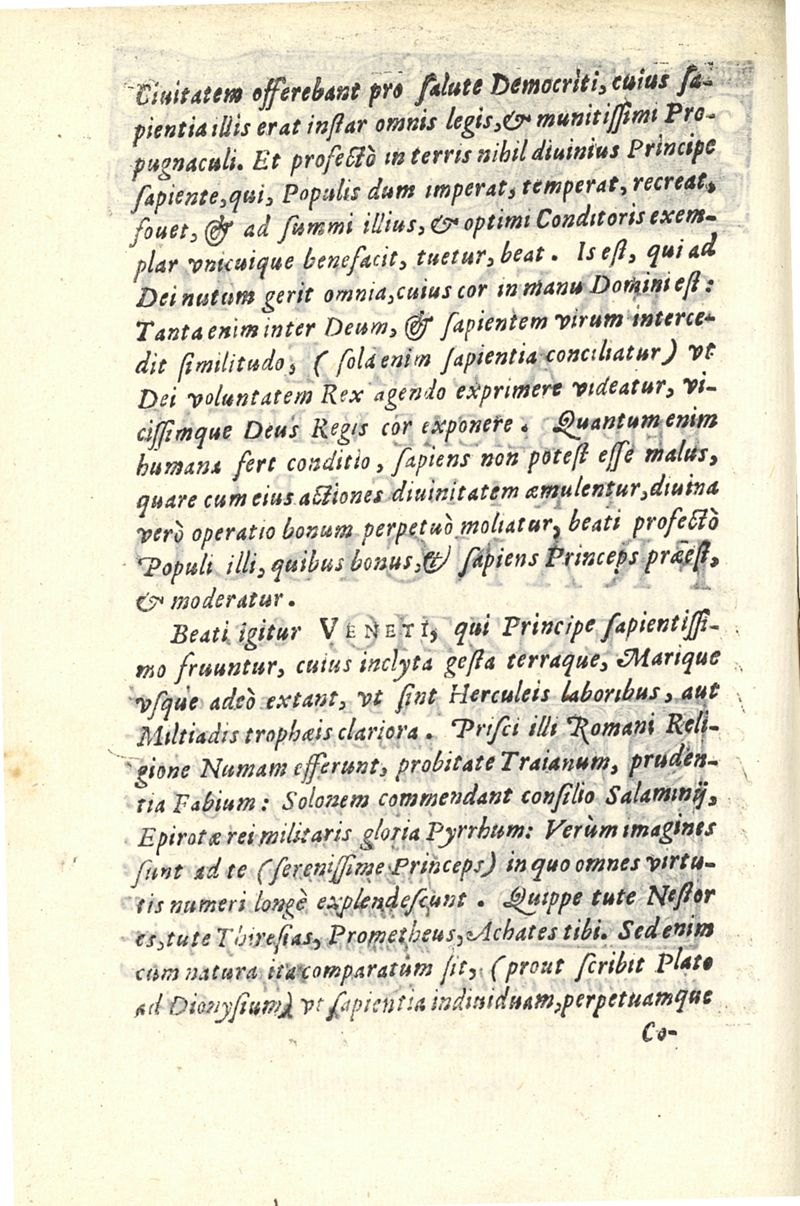 Ciuitatem offerebant pro ſalute Democriti, cuius ſa-
pientia illis erat inſtar omnis legis, & munitiſſimi Pro-
pugnaculi. Et profectò in terris nihil diuinius Principe
ſapiente, qui, Populis dum imperat, temperat, recreat,
fouet, & ad ſummi illius, & optimi Conditoris exem-
plar vnicuique benefacit, tuetur, beat. Is eſt, qui ad
Dei nutum gerit omnia, cuius cor in manu Domini eſt:
Tanta enim inter Deum, & ſapientem virum interce-
dit ſimilitudo, (ſola enim ſapientia conciliatur) vt
Dei voluntatem Rex agendo exprimere videatur, vi-
ciſſimque Deus Regis cor exponere. Quantum enim
humana fert conditio, ſapiens non poteſt eſſe malus,
quare cum eius actiones diuinitatem æmulentur, diuina
verò operatio bonum perpetuò moliatur, beati profectò
Populi illi, quibus bonus, & ſapiens Princeps præeſt,
& moderatur.
Beati igitur VENETI, qui Principe ſapientiſſi-
mo fruuntur, cuius inclyta geſta terraque, Marique
vſque adeò extant, vt ſint Herculeis laboribus, aut
Miltiadis trophæis clariora. Priſci illi Romani Reli-
gione Numam efferunt, probitate Traianum, pruden-
tia Fabium: Solonem commendant conſilio Salaminij,
Epirotæ rei militaris gloria Pyrrhum: Verùm imagines
ſunt ad te (ſereniſſime Princeps) in quo omnes virtu-
tis numeri longè explendeſcunt. Quippe tute Neſtor
es, tute Thireſias, Prometheus, Achates tibi. Sed enim
cum natura ita comparatum ſit, (prout ſcribit Plato
ad Dionyſium) vt ſapientia indiuiduam, perpetuamque
Co-